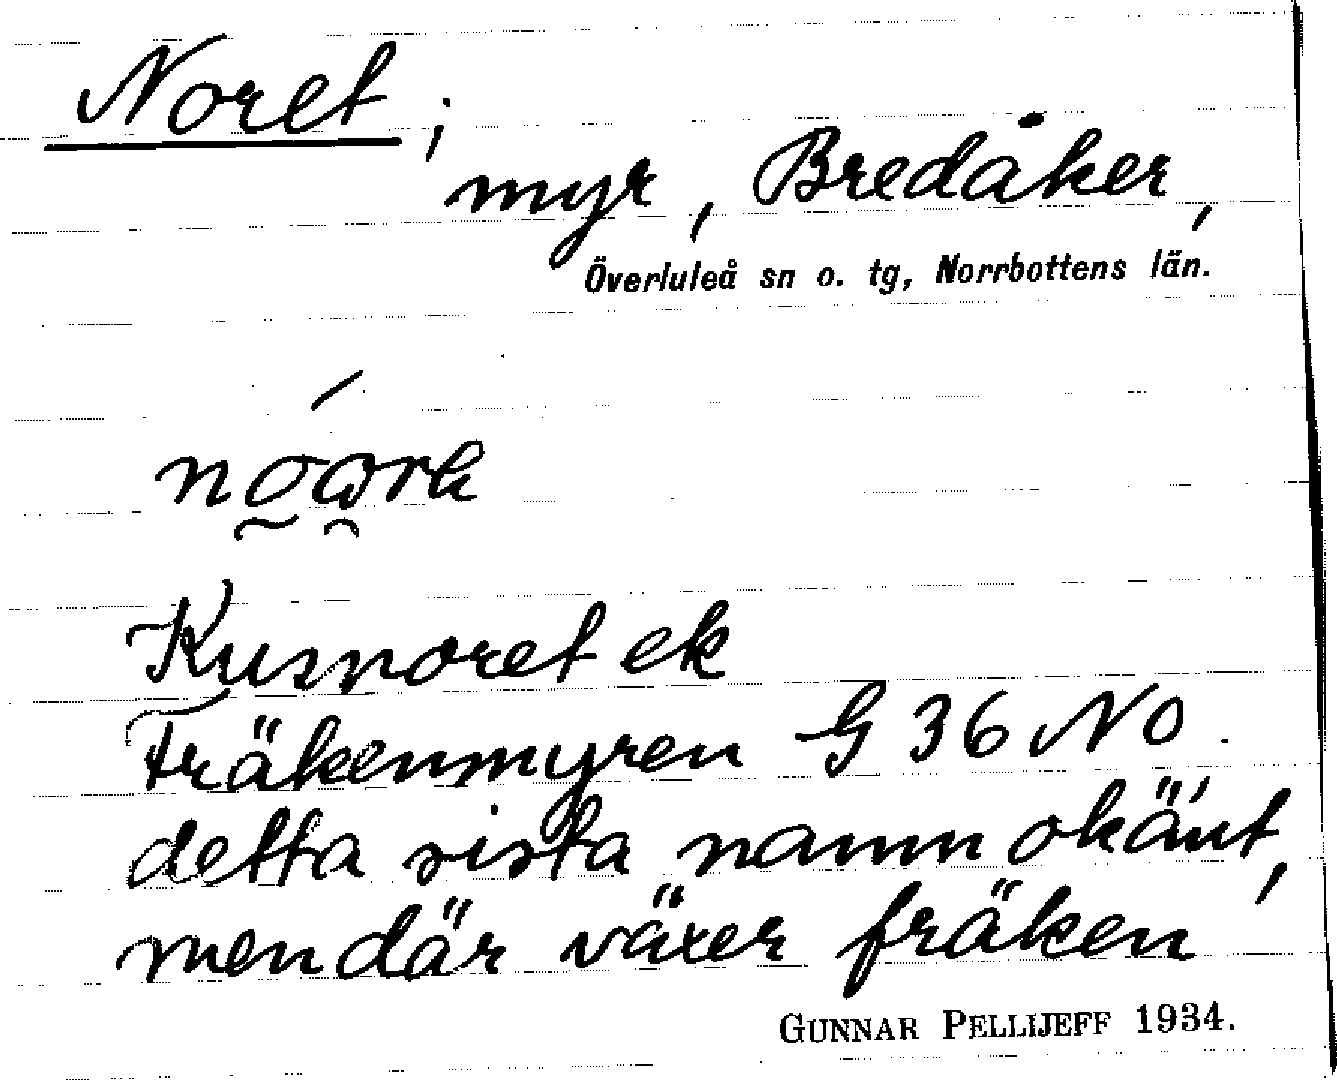 Noret,
myr, Bredåker,
Överluleå sn o. tg, Norrbottens län.
Kusnoret ek
Fräkenmyren G 36 NO.
detta sista namn okänt,
men där växer fräken
GUNNAR PELLIJEFF 1934.